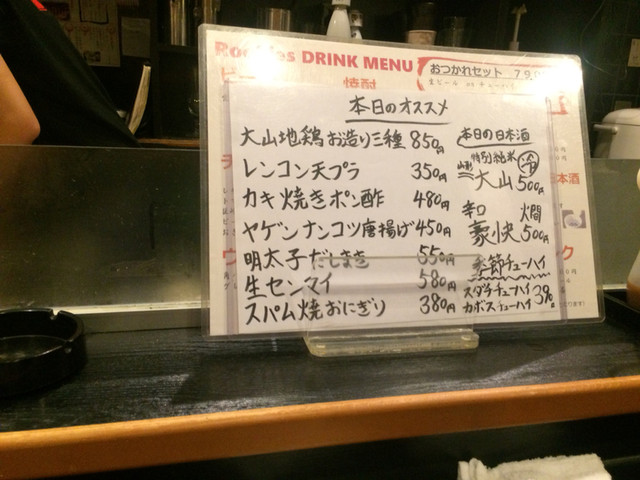 Rookies DRINK MENU
おつかれセット 790円
焼酎
本日のオススメ
大山地鶏お造り三種 850円
レンコン天プラ 350円
カキ焼きポン酢 480円
ヤゲンナンコツ唐揚げ 450円
明太子だしまき 550円
生センマイ 580円
スパム焼おにぎり 380円
本日の日本酒
山形 特別純米 冷
大山 500円
辛口 燗
豪快 500円
季節チューハイ
スダチチューハイ
カボスチューハイ